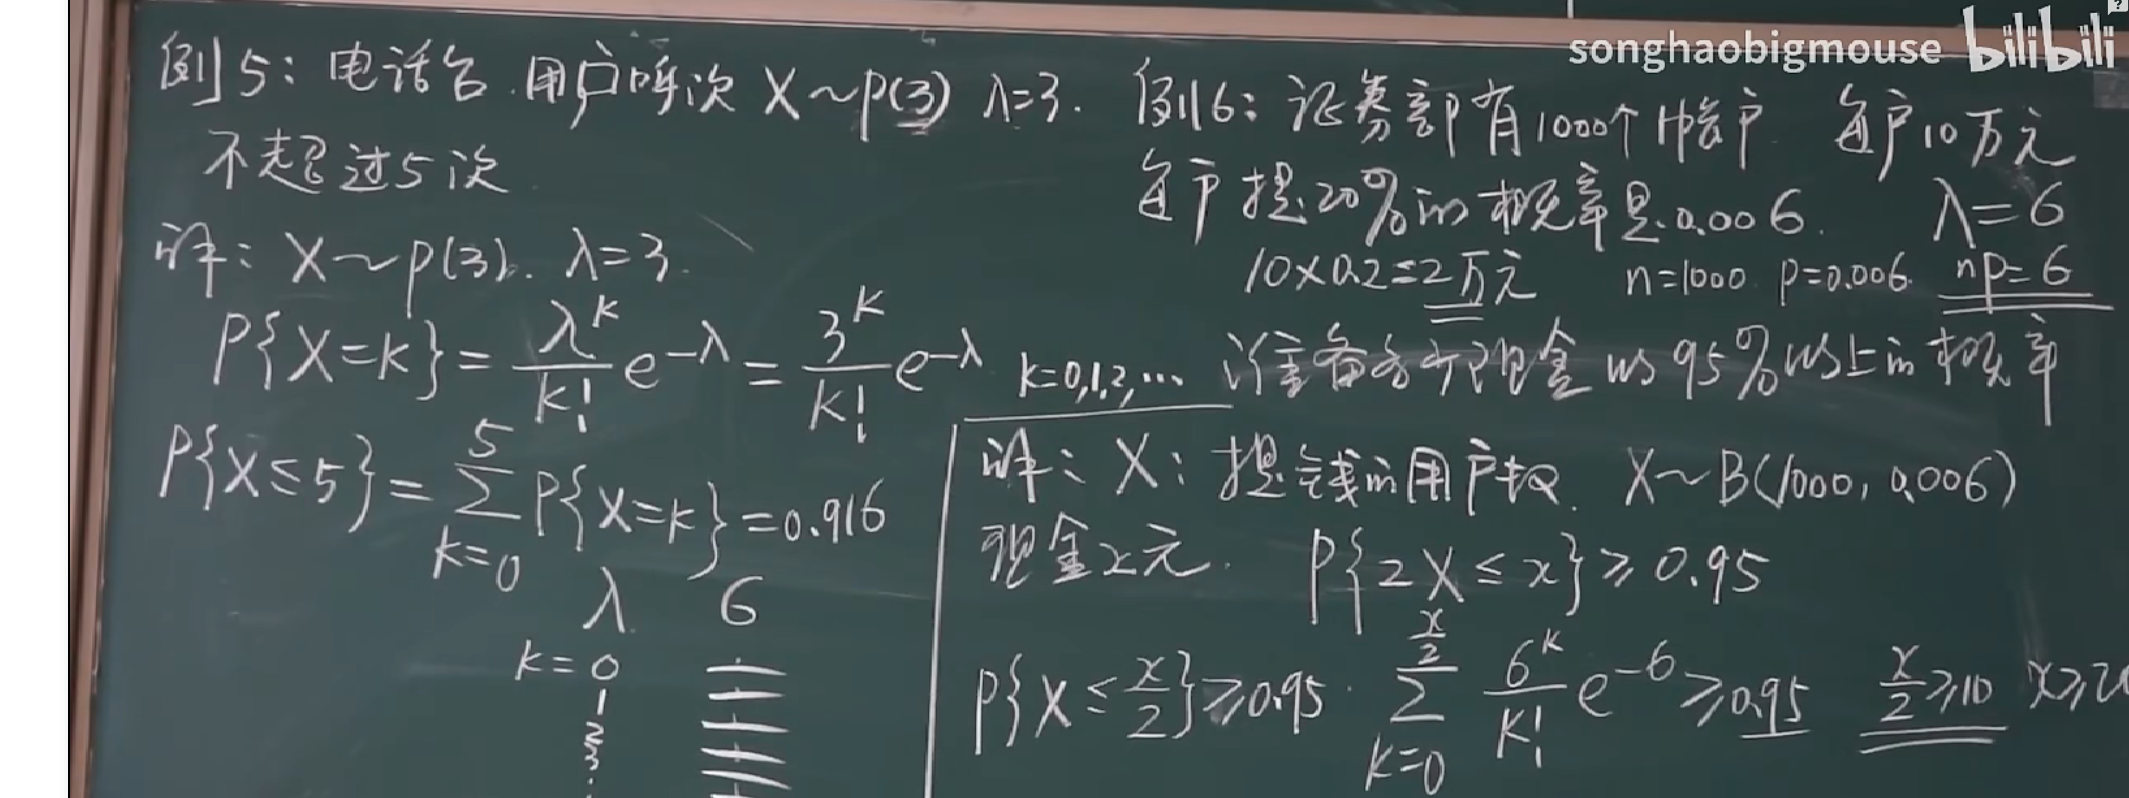 songhaobigmouse bilibili
例5：电话台.用户呼次 X~P(3) λ=3.
不超过5次
解：X~P(3). λ=3.
P{X=k}=\frac{λ^k}{k!}e^{-λ}=\frac{3^k}{k!}e^{-λ} k=0,1,2,…
P{X≤5}=\sum_{k=0}^{5}P{X=k}=0.916
λ 6
k=0
1
2
3
例6：证券部有1000个帐户 每户10万元
每户提20%的概率是0.006. λ=6
10×0.2=2万元 n=1000 p=0.006. np=6
准备多少现金 以95%以上的概率
解：X：提钱的用户数. X~B(1000, 0.006)
现金x元. P{2X≤x}≥0.95
P{X≤\frac{x}{2}}≥0.95. \sum_{k=0}^{\frac{x}{2}}\frac{6^k}{k!}e^{-6}≥0.95 \frac{x}{2}≥10 x≥20